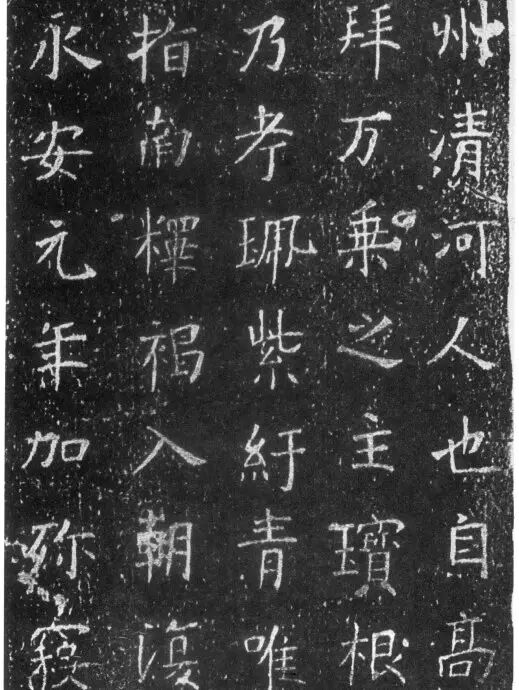 州清河人也自高
拜万乘之主璸根
乃考珮紫紆青唯
指南釋褐入朝復
永安元年加殄寇